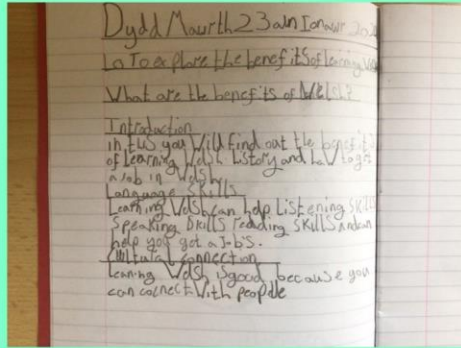 Dydd Maurth 23ain Ionawr
Lo To explore the benefits of learning
What are the benefits of Welsh?
Introduction
in this you will find out the benefits
of Learning Welsh history and how to get
a job in Welsh
Language Skills
Learning Welsh can help Listening skills
Speaking skills reading skills and can
help you get a J-b's.
Cultural connection
Leaning Welsh is good because you
can conect with people